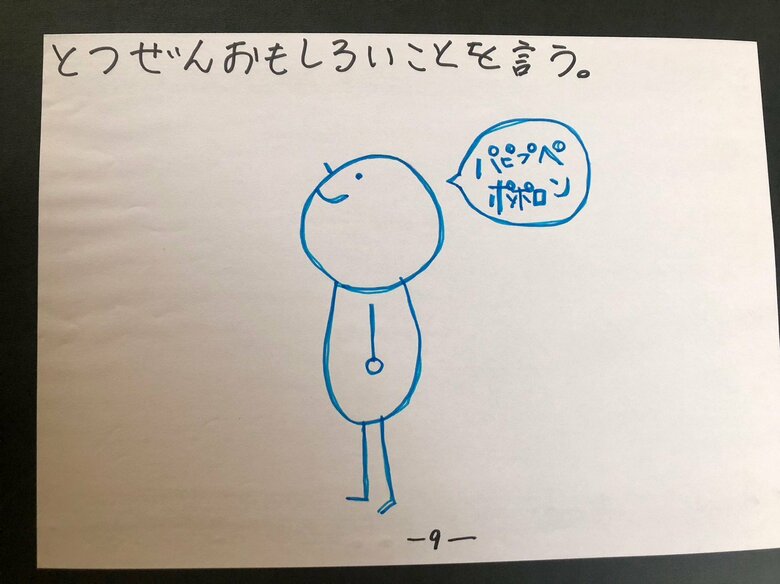 とつぜんおもしろいことを言う。
パピプペ
ポッポロン
-9-